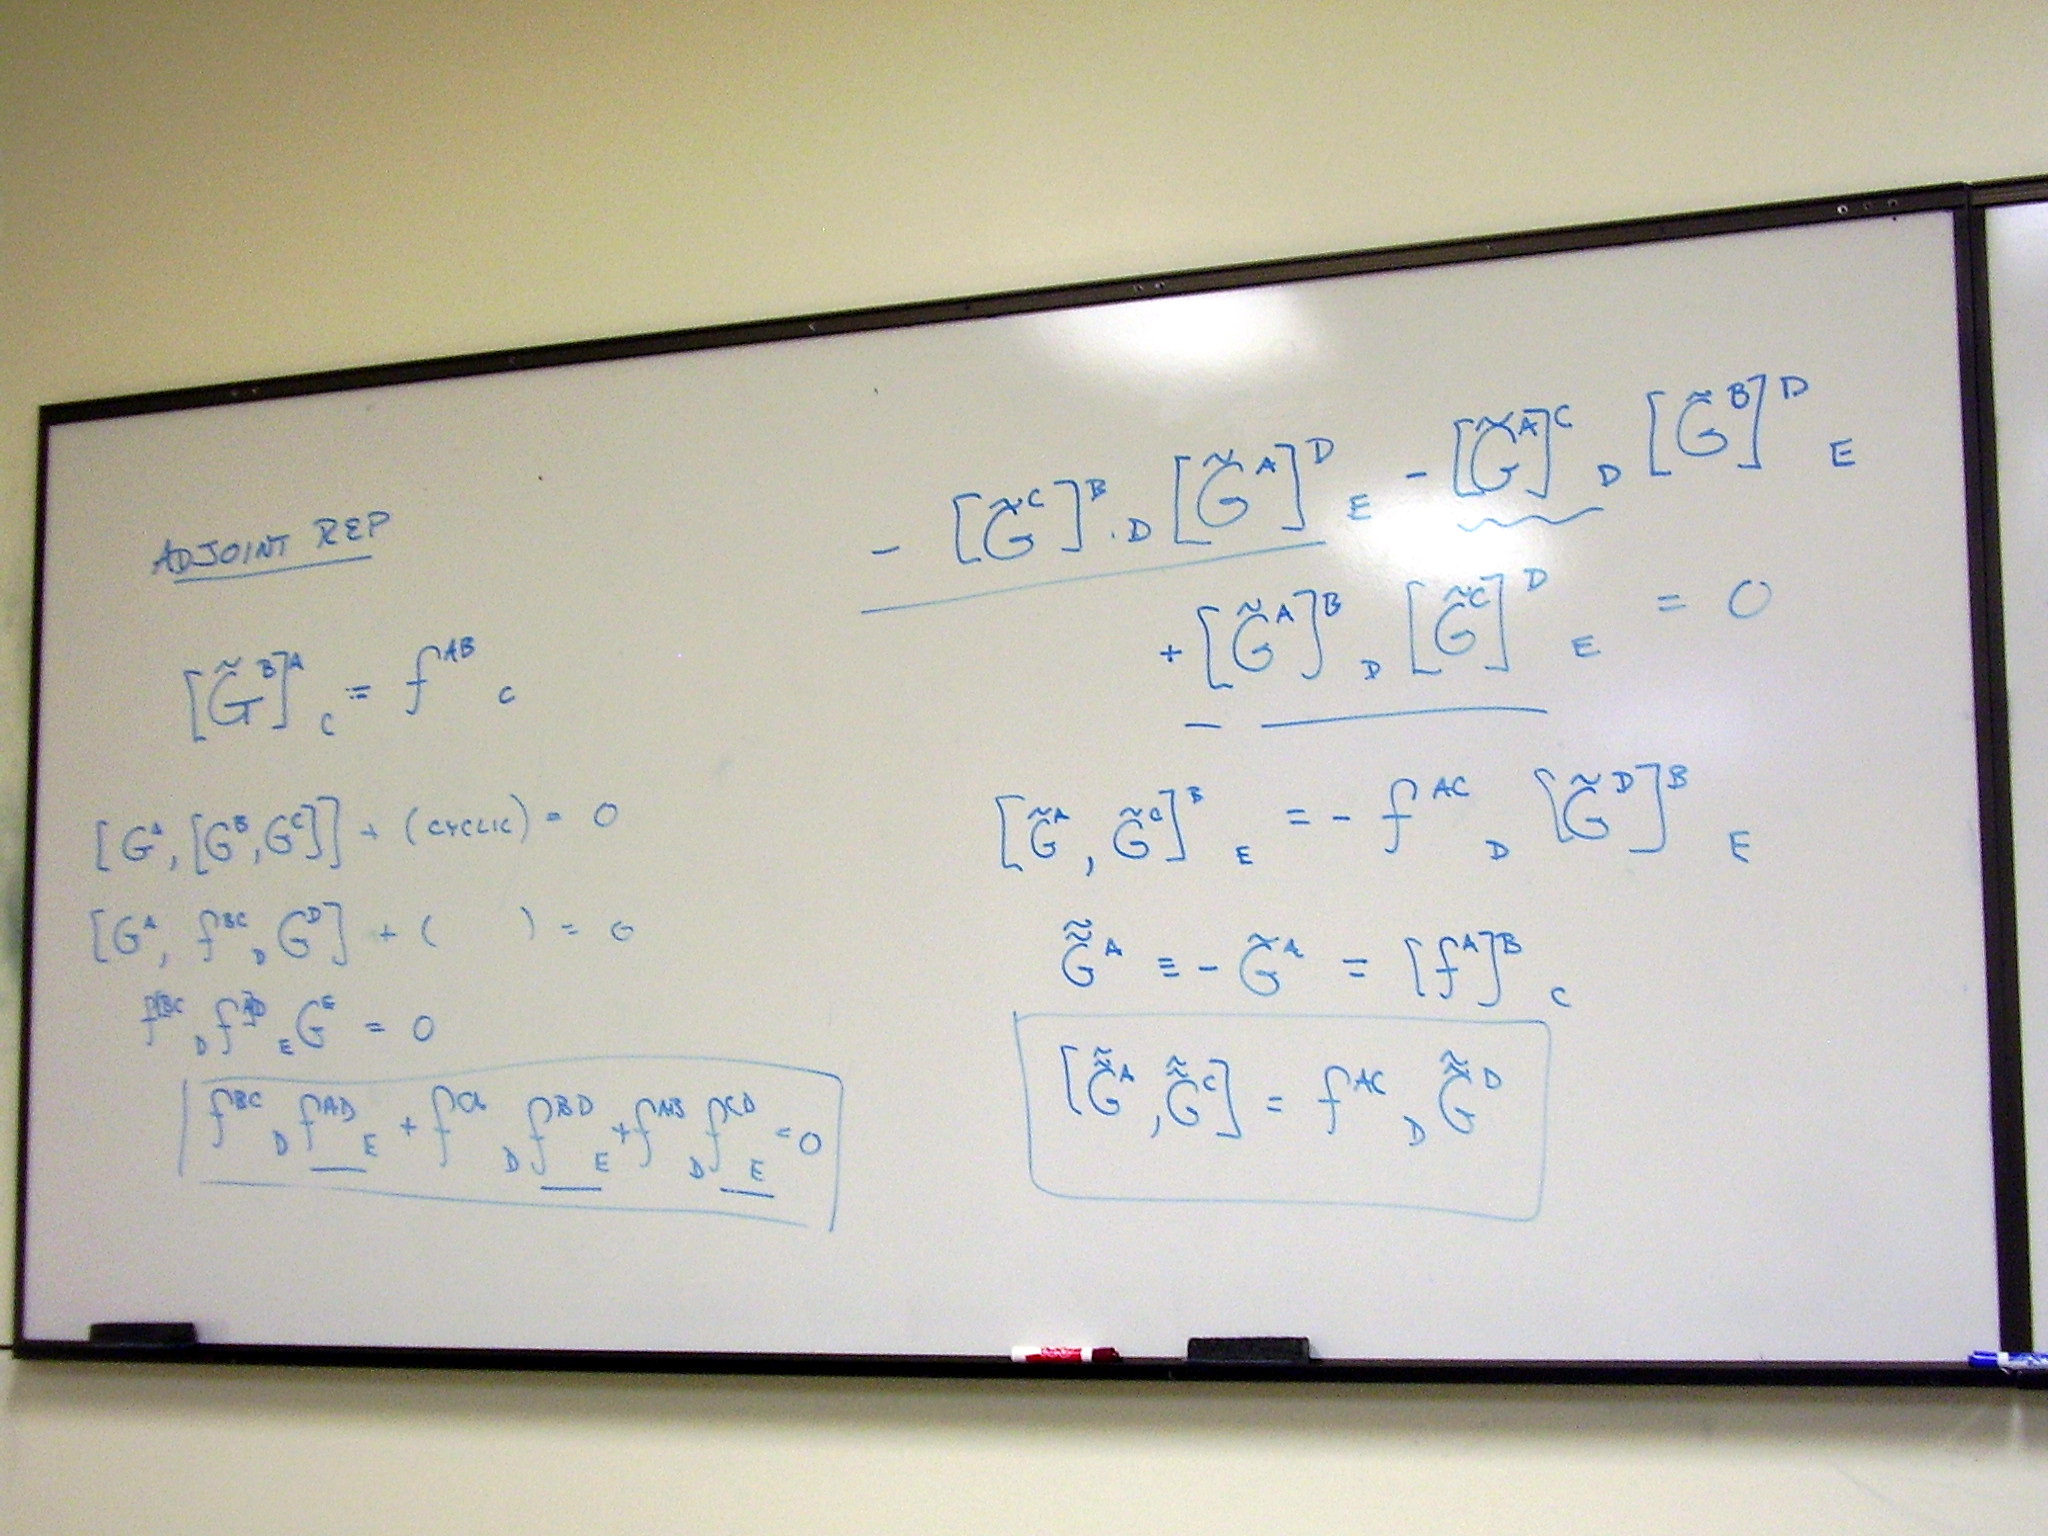 ADJOINT REP
[G̃^B]^A_C = f^{AB}_C
[G^A, [G^B, G^C]] + (CYCLIC) = 0
[G^A, f^{BC}_D G^D] + ( ) = 0
f^{[BC}_D f^{A]D}_E G^E = 0
f^{BC}_D f^{AD}_E + f^{CA}_D f^{BD}_E + f^{AB}_D f^{CD}_E = 0
- [G̃^C]^B_D [G̃^A]^D_E - [G̃^A]^C_D [G̃^B]^D_E
+ [G̃^A]^B_D [G̃^C]^D_E = 0
[G̃^A, G̃^C]^B_E = - f^{AC}_D [G̃^D]^B_E
G̃̃^A ≡ - G̃^A = [f^A]^B_C
[G̃̃^A, G̃̃^C] = f^{AC}_D G̃̃^D